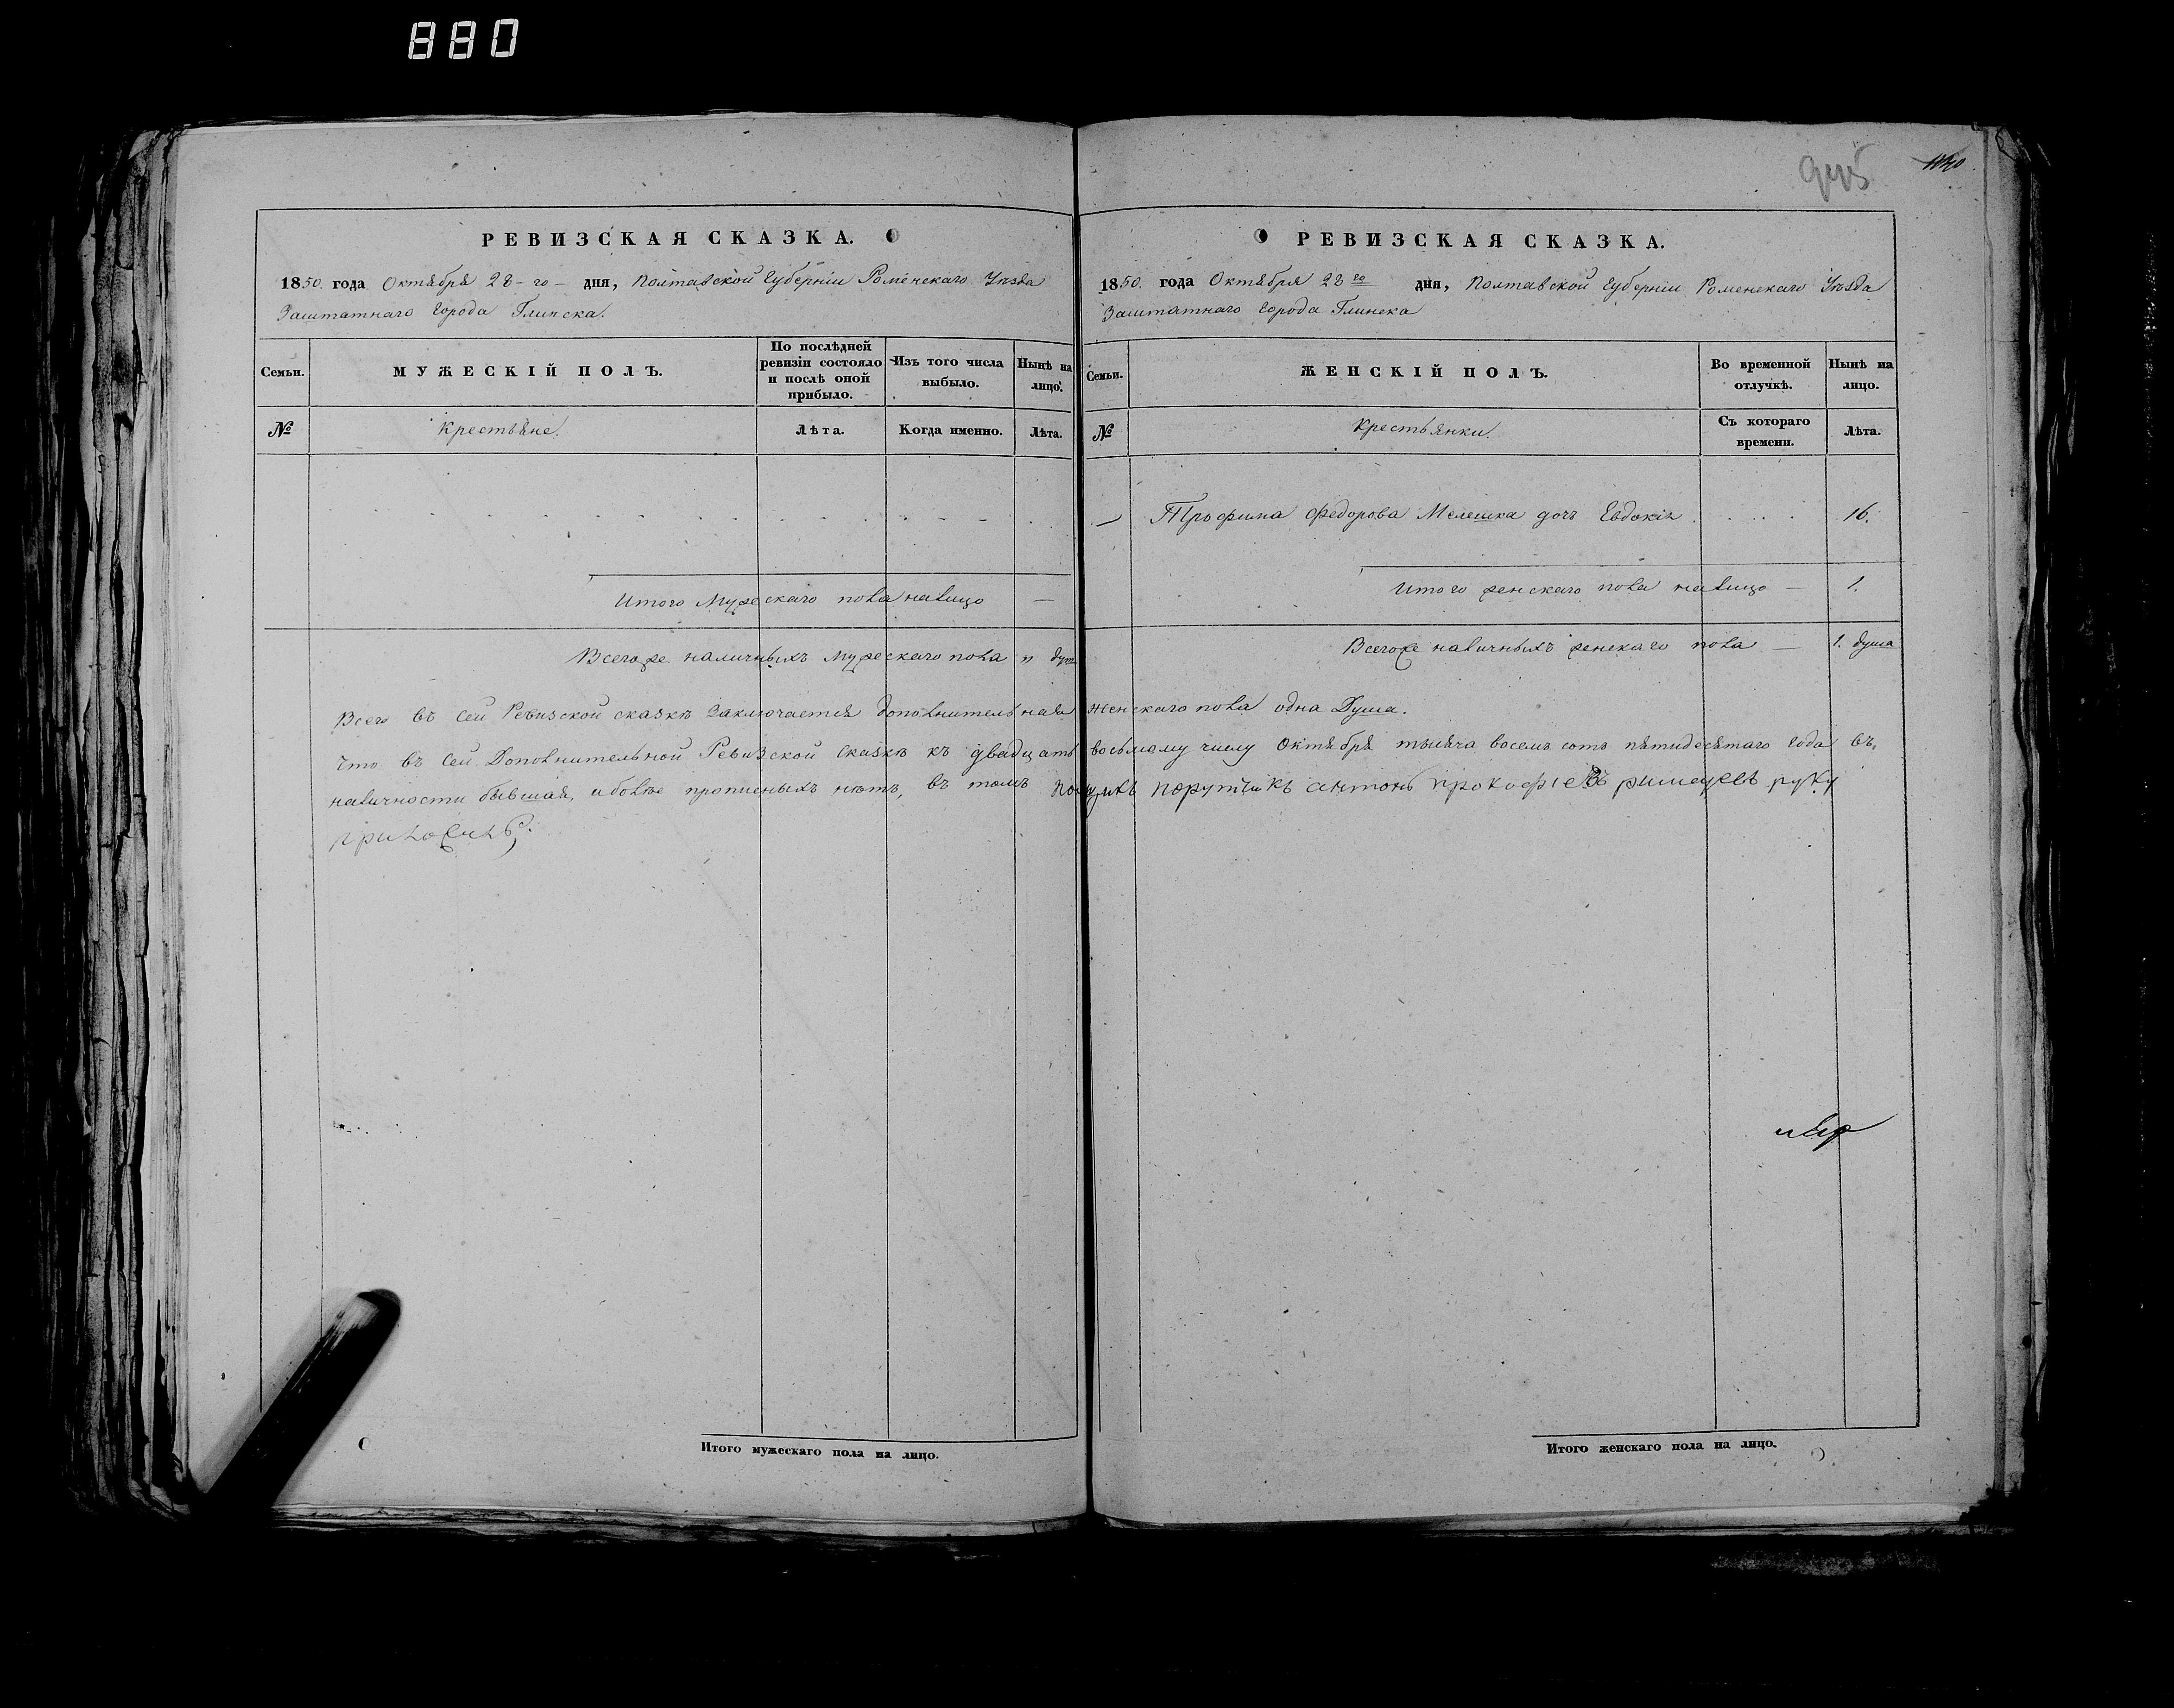 880
945
1140
РЕВИЗСКАЯ СКАЗКА.
1850. года Октября 28-го- дня, Полтавской Губерніи Роменскаго Уѣзда
Заштатнаго Города Глинска.
Семьи.
МУЖЕСКІЙ ПОЛЪ.
По послѣдней
ревизіи состояло
и послѣ оной
прибыло.
Изъ того числа
выбыло.
Нынѣ на
лицо.
№
Крестьяне.
Лѣта.
Когда именно.
Лѣта.
Итого Мужескаго пола налицо —
Всегоже наличныхъ мужескаго пола
РЕВИЗСКАЯ СКАЗКА.
1850. года Октября 28го дня, Полтавской Губерніи Роменскаго Уѣзда
Заштатнаго Города Глинска
Семьи.
ЖЕНСКІЙ ПОЛЪ.
Во временной
отлучкѣ.
Нынѣ на
лицо.
№
Крестьянки.
Съ котораго
времени.
Лѣта.
— Трофима Федорова Мелешка дочь Евдокія 16.
Итого женскаго пола налицо — 1.
Всегоже наличныхъ женскаго пола — 1. душа
Всего въ сей Ревизской сказкѣ заключается дополнительная женскаго пола одна Душа.
Что въ сей Дополнительной Ревизской сказкѣ къ двадцать восьмому числу Октября тысяча восемь сотъ пятидесятаго Года въ
наличности бывшая, и болѣе прописныхъ нѣтъ, въ томъ порутчикъ антонъ прокофіевъ руку
приложилъ.
Итого мужескаго пола на лицо.
Итого женскаго пола на лицо.